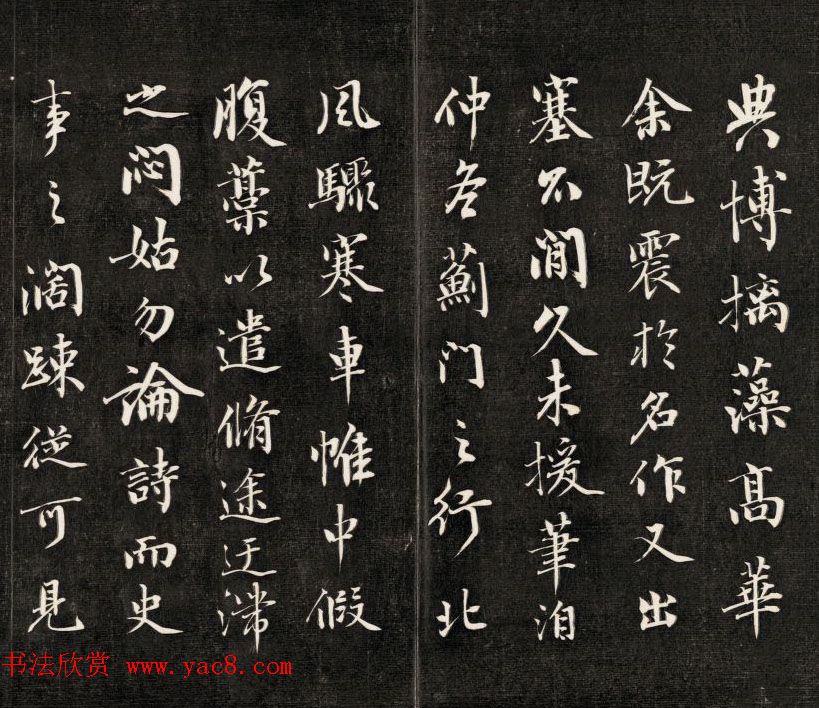 典博摛藻高華
余既震於名作又出
塞不閒久未援筆洎
仲冬薊门之行北
风驟寒車帷中假
腹藳以遣脩途迂滯
之悶姑勿論詩而史
事之濶踈從可見
书法欣赏 www.yac8.com